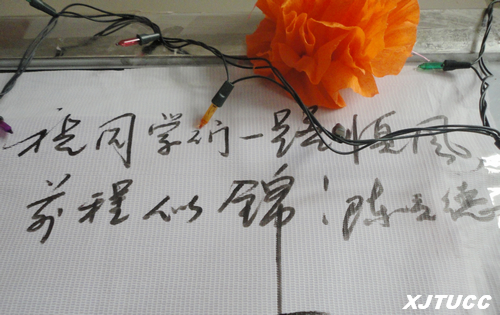 祝同学们一路顺风
前程似锦!陈
德
XJTUCC